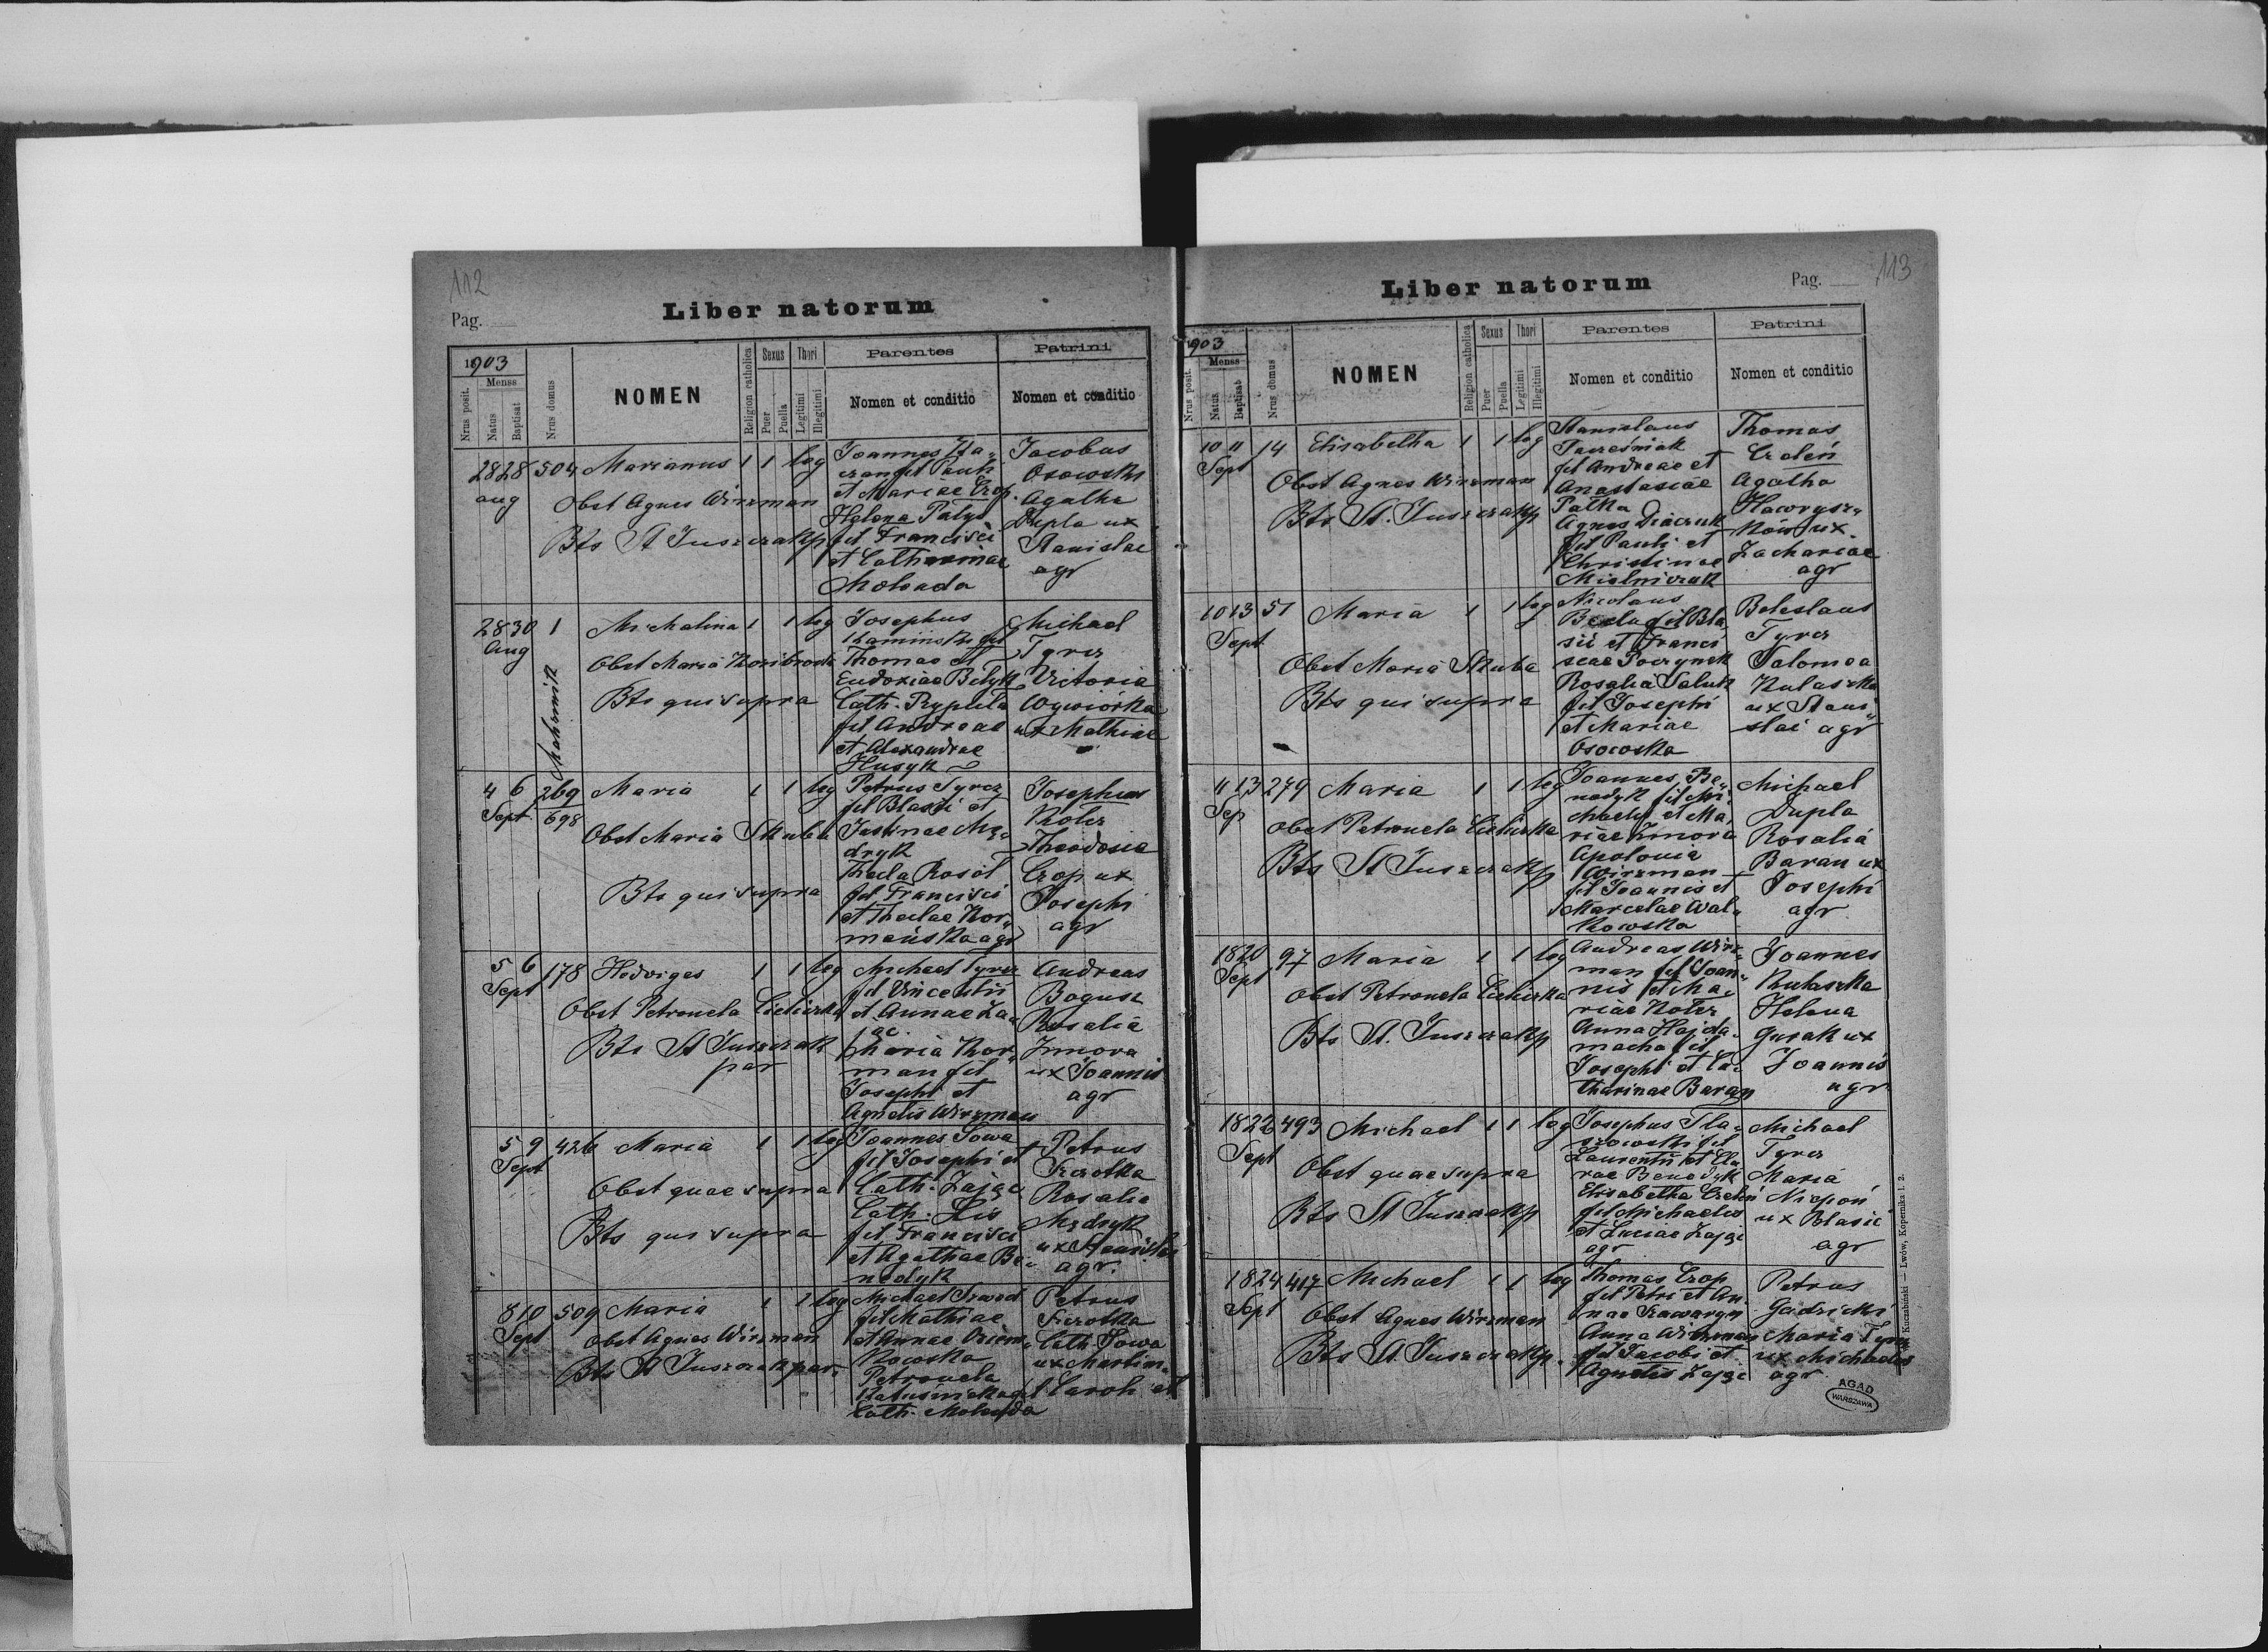 112
Pag.
Liber natorum
1903
Nrus posit.
Menss
Natus
Baptisat
Nrus domus
NOMEN
Religion catholica
Sexus
Puer
Puella
Thori
Legitimi
Illegitimi
Parentes
Nomen et conditio
Patrini
Nomen et conditio
28 28 504 Marianus 1 1 leg
aug
Obst Agnes Wirzman
Bts St Juszczak p
Joannes
fil Pauli
et Mariae Czop
Helena Palys
fil Francisci
et Catharinae
Jacobus
Osowski
Agatha
Dupla ux
Stanislai
agr
28 30 1 Michalina 1 1 leg
Aug
Obst Maria
Bts qui supra
Josephus
Kaminski fil
Thomae et
Eudoxiae
Cath. Prypuła
fil Andreae
et Alexandrae
Husyk
Michael
Tyrcz
Victoria
Wywiórka
ux Mathiae
4 6 269 Maria 1 1 leg
Sept 698
Obst Maria Skuba
Bts qui supra
Petrus Tyrcz
fil Blasii et
Justinae Mą
dryk
Thecla Rosół
fil Francisci
et Theclae Kor
mańska agr
Josephus
Kotcz
Theodosia
Czop ux
Josephi
agr
5 6 178 Hedviges 1 1 leg
Sept
Obst Petronela Cieliczka
Bts St Juszczak
par
Michael Tyrcz
fil Vincentii
et Annae Za
jąc
Maria Kor
man fil
Josephi et
Agnetis Wirzman
Andreas
Bogusz
Rosalia
Zmora
ux Joannis
agr
5 9 426 Maria 1 1 leg
Sept
Obst quae supra
Bts qui supra
Joannes Sowa
fil Josephi et
Cath. Zając
Cath. Lis
fil Francisci
et Agathae Be
nedyk
Petrus
Szczotka
Rosalia
Mędryk
ux Stanislai
agr.
8 10 509 Maria 1 1 leg
Sept
Obst Agnes Wirzman
Bts St Juszczak par.
Michael
fil Mathiae
et Annae
Petronela
fil Caroli et
Cath. Molenda
Petrus
Szczotka
Cath Sowa
ux Martini
113
Pag.
Liber natorum
1903
Nrus posit.
Menss
Natus
Baptisat
Nrus domus
NOMEN
Religion catholica
Sexus
Puer
Puella
Thori
Legitimi
Illegitimi
Parentes
Nomen et conditio
Patrini
Nomen et conditio
10 11 14 Elisabetha 1 1 leg
Sept
Obst Agnes Wirzman
Bts St. Juszczak p
Stanislaus
fil Andreae et
Anastasiae
Pałka
Agnes Diaczuk
fil Pauli et
Christinae
Mielniczuk
Thomas
Czeleń
Agatha
Hawrysz
ków ux
Zachariae
agr
10 13 51 Maria 1 1 leg
Sept
Obst Maria Skuba
Bts qui supra
Nicolaus
fil Bla
sii et Franci
scae Poczynek
Rosalia Saluk
fil Josephi
et Mariae
Osowska
Boleslaus
Tyrcz
Salomea
Kulaszka
ux Stani
slai agr
11 13 279 Maria 1 1 leg
Sep
Obst Petronela Cieliczka
Bts St Juszczak p
Joannes Be
nedyk fil Mi
chaelis et Ma
riae Zmora
Apolonia
Wirzman
fil Joannis et
Marcelae Wal
kowska
Michael
Dupla
Rosalia
Baran ux
Josephi
agr
18 20 97 Maria 1 1 leg
Sept
Obst Petronela Cieliczka
Bts St. Juszczak p
Andreas Wirz
man fil Joan
nis et Ma
riae Kotcz
Anna Hajda
macha fil
Josephi et Ca
tharinae Baran
Joannes
Kulaszka
Helena
Gurak ux
Joannis
agr
18 22 493 Michael 1 1 leg
Sept
Obst quae supra
Bts St Juszczak p
Josephus
fil
Laurentii et Cla
rae Benedyk
Elisabetha Czeleń
fil Michaelis
et Luciae Zając
agr
Michael
Tyrcz
Maria
Niepoń
ux Blasii
agr
18 24 417 Michael 1 1 leg
Sept
Obst Agnes Wirzman
Bts St. Juszczak p.
Thomas Czop
fil Petri et An
nae
Anna Wirzman
fil Jacobi et
Agnetis Zając
Petrus
Gadzicki
Maria Tyrcz
ux Michaelis
agr
Kuczabiński — Lwów, Kopernika l. 2.
AGAD
WARSZAWA